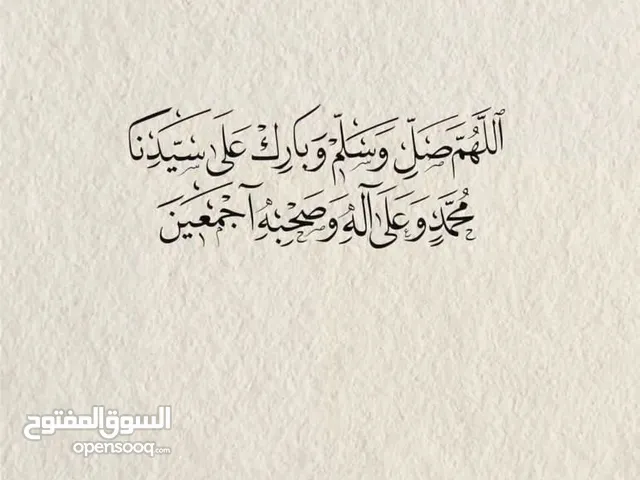 اللَّهُمَّ صَلِّ وَسَلِّمْ وَبَارِكْ عَلَى سَيِّدِنَا
مُحَمَّدٍ وَعَلَى آلِهِ وَصَحْبِهِ أَجْمَعِينَ
السوق المفتوح
opensooq.com